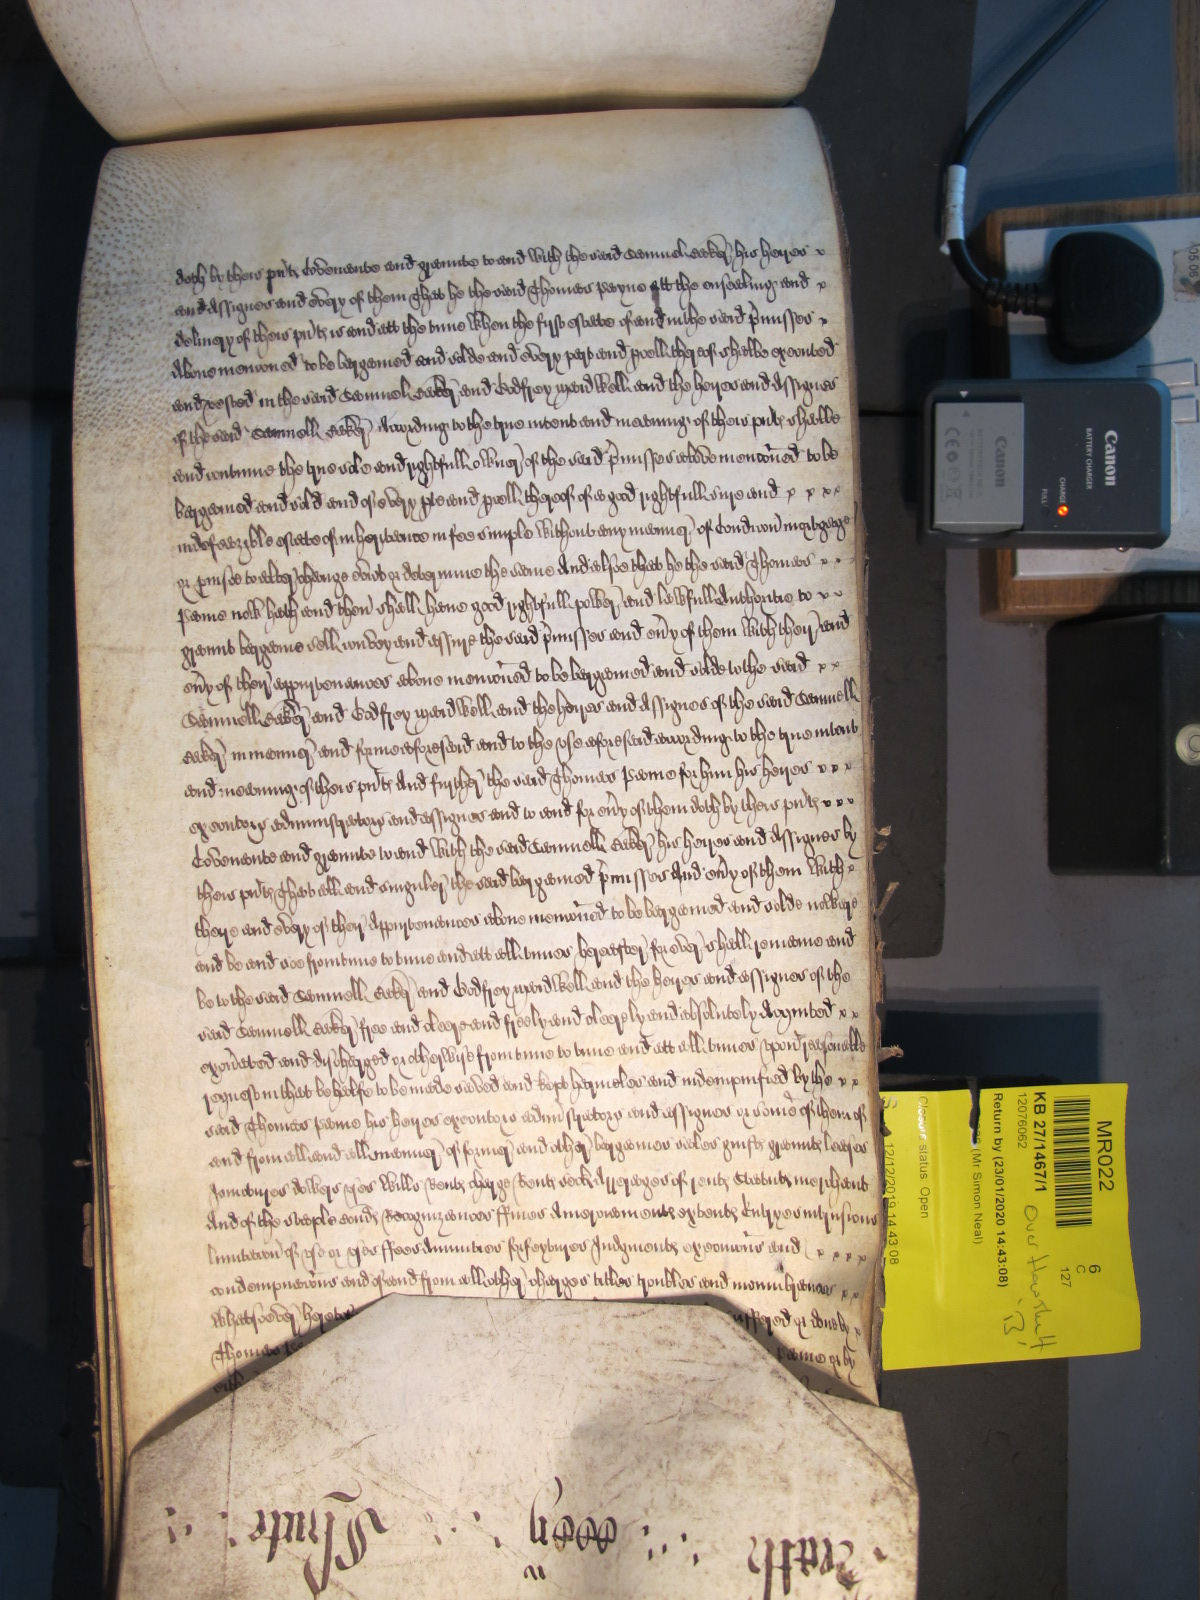 doth by theis pn'ts Covenante and graunte to and with the said Samuel Baker his heires x
and Assignes and every of them That he the said Thomas Payne att the ensealing and x
delivery of theis pn'ts is and att the time when the first estate of and in the said p'misses x
Above mencioned to be bargained and solde and every part and p'cell therof shalbe executed
and vested in the said Samuel and Godfrey Maidwell and the heires and Assignes
of the said Samuell According to the true intent and meaning of theis pn'ts shalbe
and continue the true sole and rightfull owner of the said p'misses above menco'ed to be
bargained and sold and of every p'te and p'cell therof of a good rightfull sure and x x x x
indefeazible estate of inheritance in fee simple without any manner of Condic'on mortgage
or p'viso to alter change or determine the same And alsoe that he the said Thomas x x
Payne now hath and then shall have good rightfull power and lawfull Authoritie to x x
graunt bargaine sell convey and assure the said p'misses and ev'y of them with their and
ev'y of their appurtenances above menco'ed to be bargained and solde to the said x x
Samuell and Godfrey Maidwell and the heires and Assignes of the said Samuell
in manner and forme aforesaid and to the use aforesaid according to the true intent
and meaning of theis pn'ts And further the said Thomas Payne for him his heires x x x
executors administrators and assignes and to and for ev'y of them doth by theis pn'ts x x x
Covenante and graunte to and with the said Samuell his heires and Assignes by
theis pn'ts That all and singuler the said bargained p'misses And ev'y of them with x
there and every of their Appurtenances above menco'ed to be bargained and solde now are
and be and soe from time to time and att all times hereafter for ever shall remaine and
be to the said Samuell and Godfrey Maidwell and the heires and assignes of the
said Samuell free and cleere and freely and cleerely and absolutely Acquited x x
exon'ated and discharged or otherwise from time to time and att all times upon reasonable
request in that behalfe to be made saved and kept harmeles and indempnified by the x x
said Thomas Payne his heires executors administrators and assignes or some of them of
and from all and all manner of former and other bargaines sales guifts graunts leases
Joinctures dowers uses wills Rents charge Rents seck Arrerages of rents Statuts merchant
And of the staple Recognizances ffines Amerciaments extents Entryes intrusions
limitac'on of use or uses ffees Annuities forfeytures Judgments execuc'ons and x x x x
condempnac'ons and of and from all other charges titles troubles and incumbrances x x
whatsoever suffered or done by x
Thomas Payne or by
Canon
BATTERY CHARGER
CHARGE
FULL
Canon
BATTERY PACK
MR022
6
C
127
KB 27/1467/1
12076062
Return by (23/01/2020 14:43:08)
(Mr Simon Neal)
Closure status: Open
12/12/2019 14:43:08